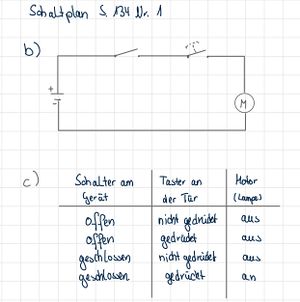 Schaltplan S. 134 Nr. 1
b)
+
-
M
c)
Schalter am Taster an Motor
Gerät der Tür (Lampe)
offen nicht gedrückt aus
offen gedrückt aus
geschlossen nicht gedrückt aus
geschlossen gedrückt an